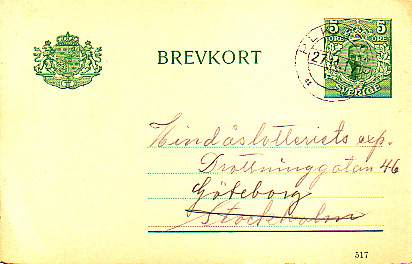 BREVKORT
5 5
ÖRE ÖRE
SVERIGE
27.11.
Hindåslotteriets exp.
Drottninggatan 46
Göteborg
Stockholm
517